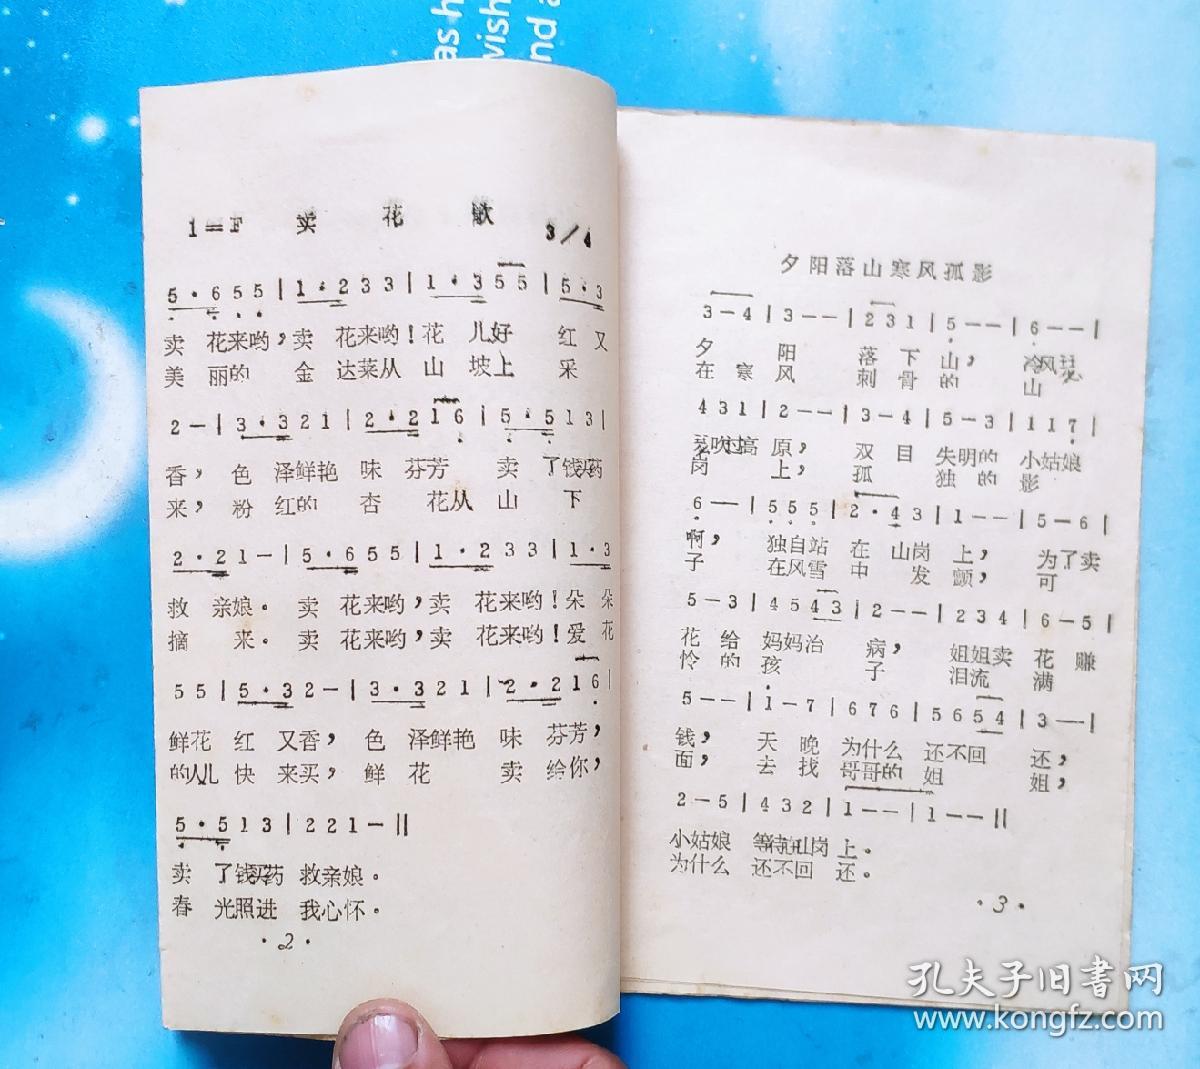 as h
wish
nd a
1=F 卖 花 歌 3/4
5·6 5 5 | 1·2 3 3 | 1·3 5 5 | 5·3
卖 花来哟,卖 花来哟!花 儿好 红 又
美 丽的 金 达莱从 山 坡上 采
2 - | 3·3 2 1 | 2·2 1 6 | 5·5 1 3 |
香,色 泽鲜艳 味 芬芳 卖 了钱买药
来,粉 红的 杏 花从 山 下
2·2 1 - | 5·6 5 5 | 1·2 3 3 | 1·3
救 亲娘。卖 花来哟,卖 花来哟!朵 朵
摘 来。卖 花来哟,卖 花来哟!爱 花
5 5 | 5·3 2 - | 3·3 2 1 | 2·2 1 6 |
鲜花 红 又香,色 泽鲜艳 味 芬芳,
的人儿 快 来买,鲜 花 卖 给你,
5·5 1 3 | 2 2 1 - ||
卖 了钱买药 救亲娘。
春 光照进 我心怀。
·2·
夕阳落山寒风孤影
3 - 4 | 3 - - | 2 3 1 | 5 - - | 6 - - |
夕 阳 落 下 山, 冷风
在 寒 风 刺 骨 的 山
4 3 1 | 2 - - | 3 - 4 | 5 - 3 | 1 1 7 |
吹过高 原, 双 目 失明的 小姑娘
岗 上, 孤 独 的 影
6 - - | 5 5 5 | 2·4 3 | 1 - - | 5 - 6 |
啊, 独自站 在 山岗 上, 为了卖
子 在风雪 中 发 颤, 可
5 - 3 | 4 5 4 3 | 2 - - | 2 3 4 | 6 - 5 |
花 给 妈妈治 病, 姐姐卖 花 赚
怜 的 孩 子 泪流 满
5 - - | 1 - 7 | 6 7 6 | 5 6 5 4 | 3 - - |
钱, 天 晚 为什么 还不回 还,
面, 去 找 哥哥的 姐 姐,
2 - 5 | 4 3 2 | 1 - - | 1 - - ||
小姑娘 等待在山岗 上。
为什么 还不回 还。
·3·
孔夫子旧書网
www.kongfz.com